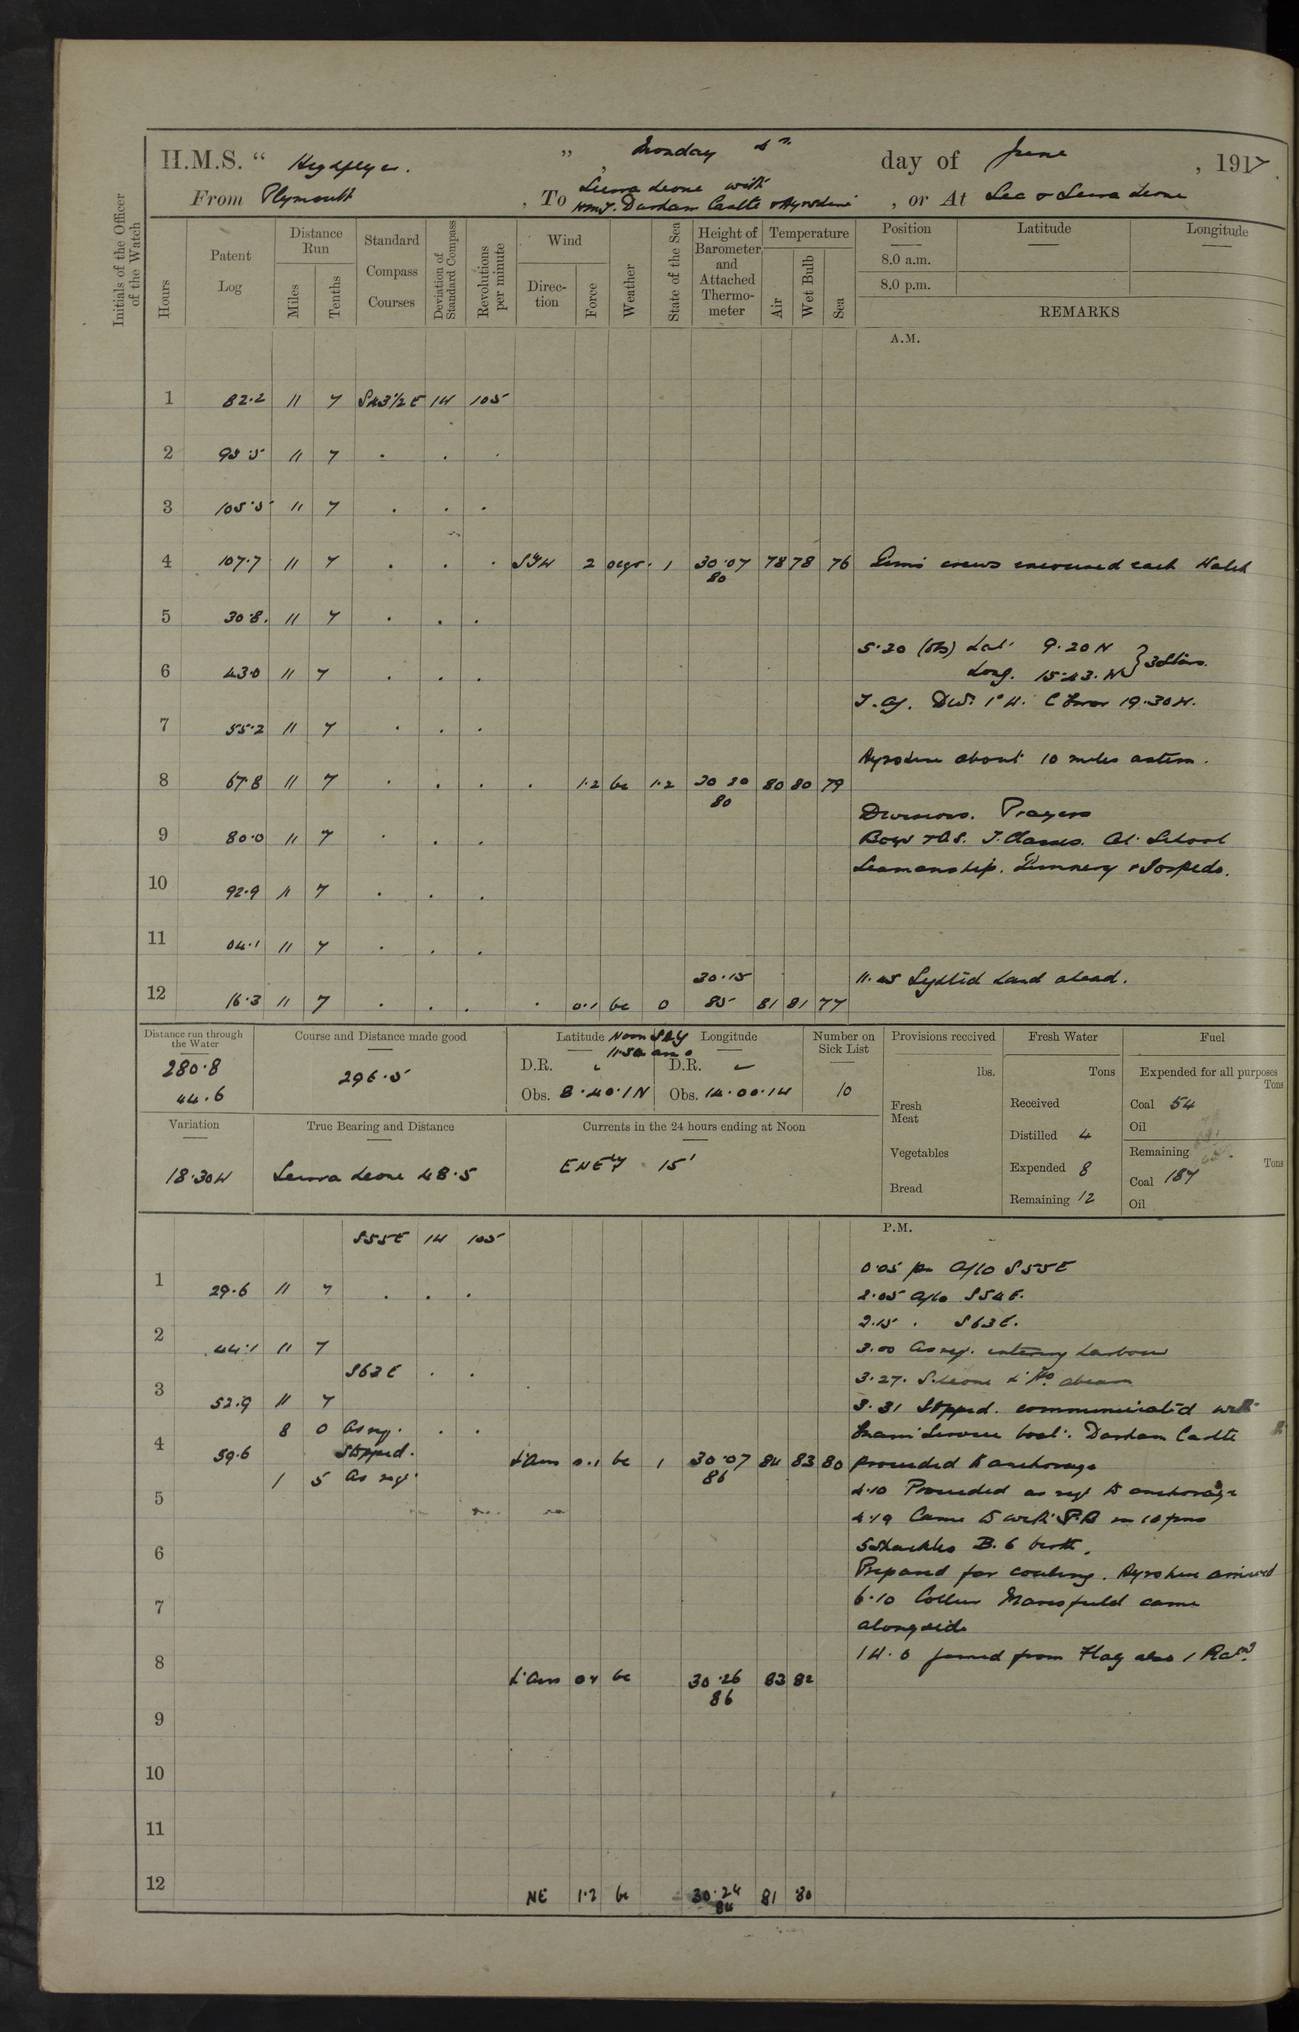 H.M.S. “ Highflyer. ” , Monday 4th day of June , 1917.
From Plymouth , To Sierra Leone with , or At Sea & Sierra Leone
H.M.T. Durham Castle & Ayrshire
Initials of the Officer of the Watch
Hours
Patent Log
Distance Run
Miles
Tenths
Standard Compass Courses
Deviation of Standard Compass
Revolutions per minute
Wind
Direction
Force
Weather
State of the Sea
Height of Barometer and Attached Thermometer
Temperature
Air
Wet Bulb
Sea
Position
8.0 a.m.
8.0 p.m.
Latitude
Longitude
REMARKS
A.M.
1 82.2 11 7 S43½E 1W 105
2 93.5 11 7 . . .
3 105.5 11 7 . . .
4 107.7 11 7 . . . SW 2 1 30.07 78 78 76 Guns crews exercised each Watch
80
5 30.8. 11 7 . . .
5.20 (Obs) Lat. 9.20 N } 3 Stars.
6 43.0 11 7 . . . Long. 15.43. W
Dev. 1° W. Error 19.30W.
7 55.2 11 7 . . .
Ayrshire about 10 miles astern.
8 67.8 11 7 . . . . 1.2 bc 1.2 30 20 80 80 79
80
Divisions. Prayers
9 80.0 11 7 . . . Boys & O.S. T. Classes. At School
Seamanship. Gunnery & Torpedo.
10 92.9 11 7 . . .
11 04.1 11 7 . . .
30.15 11.45 Sighted Land ahead.
12 16.3 11 7 . . . . 0.1 bc 0 85 81 81 77
Distance run through the Water
280.8
44.6
Course and Distance made good
296.5
Latitude Noon Longitude
11.50 am
D.R. D.R.
Obs. 8.40.1N Obs. 14.00.1W
Number on Sick List
10
Provisions received
lbs.
Fresh Meat
Vegetables
Bread
Fresh Water
Tons
Received
Distilled 4
Expended 8
Remaining 12
Fuel
Expended for all purposes
Tons
Coal 54
Oil
Remaining
Tons
Coal 187
Oil
Variation
18.30W
True Bearing and Distance
Sierra Leone 48.5
Currents in the 24 hours ending at Noon
ENEly 15'
P.M.
S55E 1W 105
0.05 pm A/Co S55E
1 29.6 11 7 . . .
2.05 A/Co S54E.
2.15 . S63E.
2 44.1 11 7 3.00 As req. entering harbour
S63E . . 3.27. S. Leone Lt Ho abeam
3 52.9 11 7 3.31 Stopped. communicated with
8 0 As req. . . Exam Service boat. Durham Castle
4 59.6 Stopped. Lt Airs 0.1 bc 1 30.07 84 83 80 proceeded to anchorage
86
1 5 As req.
4.10 Proceeded as req to anchorage
5
4.19 Came to with P.B in 10 fms
5 Shackles B.6 berth.
6
Prepared for coaling. Ayrshire arrived
6.10 Collier Mansfield came
7
alongside
8 joined from Flag also 1 Ratg
Lt Airs 0.1 bc 30.26 83 82
86
9
10
11
12 NE 1.2 bc 30.24 81 80
84